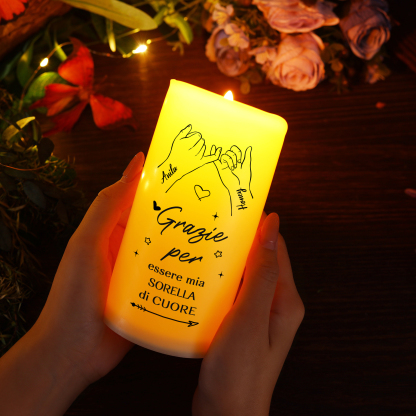 Anita
Grazie
per
essere mia
SORELLA
di CUORE